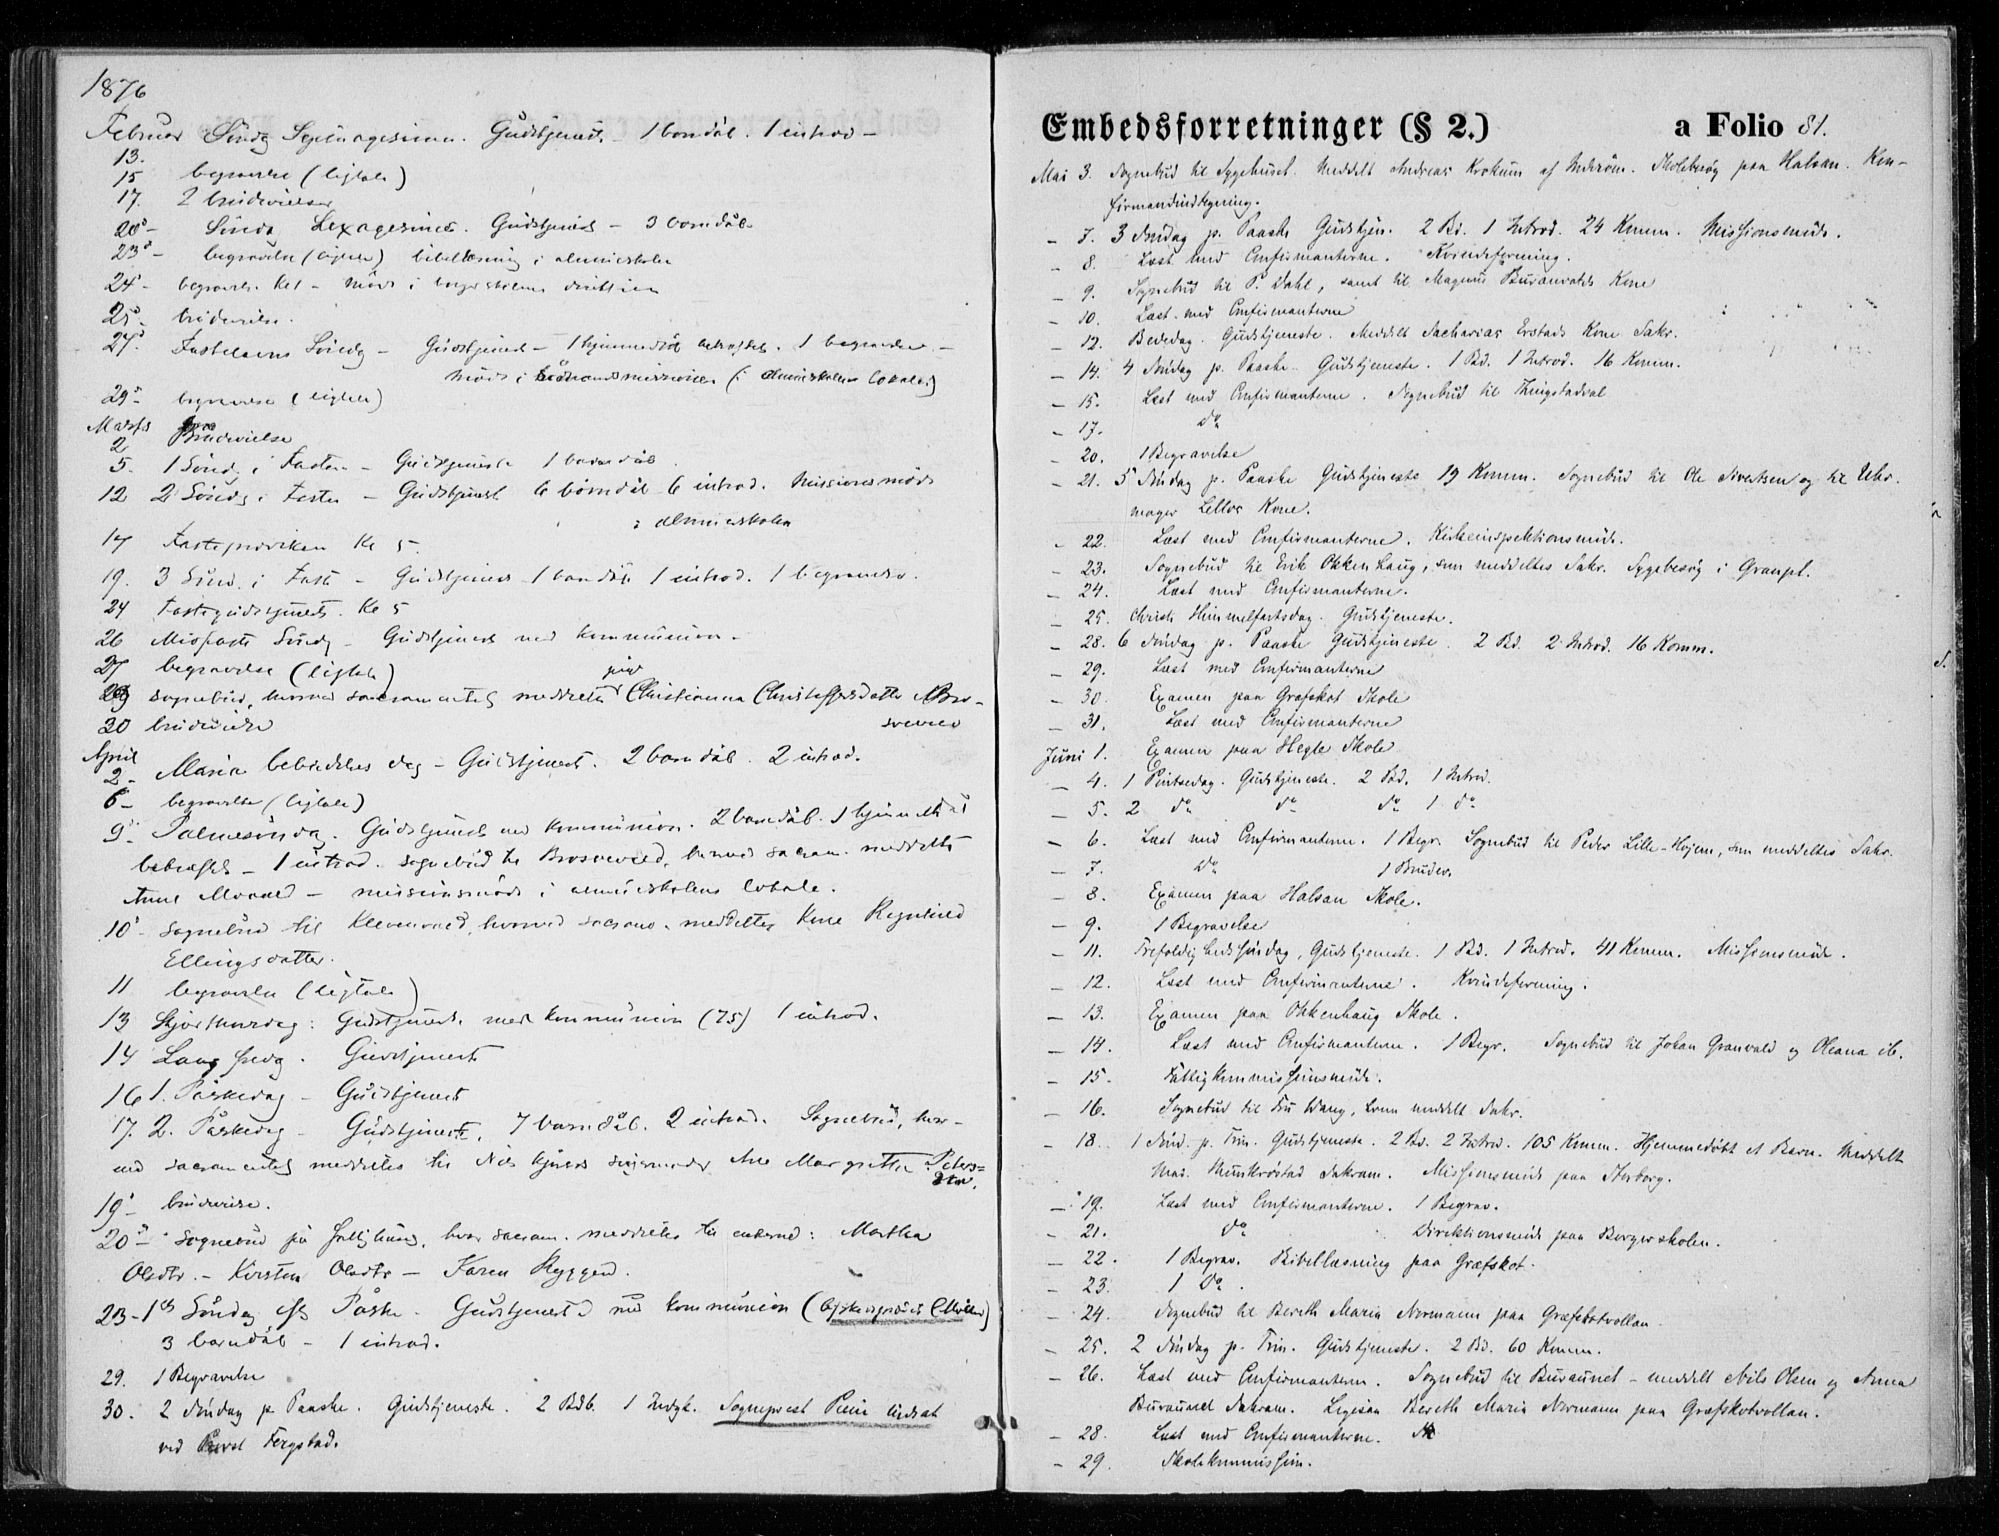 1876
Februar Söndg Septuagesima. Gudstjeneste 1 barndåb. 1 introd -
13.
15 begravelse (ligtale)
17. 2 brudevielser
20 - Söndg Sexagesima. Gudstjenest - 3 barndåb
23 - begravelse (ligtale) bibellæsning i almueskolen
24 - begravelse Møde i borgerskolens direktion
25 - brudevielse.
27 Fastelavns Söndg - Gudstjenest - 1 hjemmedöbt bekræftet. 1 begravelse -
möde i missionen (i almueskolens lokale)
29 - begravelse (ligtale)
Marts
2 Brudevielse
5. 1 Sönd. i Fasten - Gudstjeneste 1 barndåb
12 2 Söndg i Fasten - Gudstjenest 6 börndåb 6 introd. Missionsmöde
i almueskolen
17 Fasteprædiken Kl 5.
19. 3 Sönd. i Fast - Gudstjenest 1 barndåb 1 introd. 1 begravelse.
24 Fastegudstjenest. Kl 5
26 Midfaste Söndg - Gudstjenest med kommunion -
27 begravelse (ligtale)
pige
29 sognebud, hvorved sacramentet meddeltes Christianna Christoffersdatter
30 brudevielse
April
2 - Maria bebudelses dag - Gudstjenest. 2 barndåb. 2 introd.
6 - begravelse (ligtale)
9 - Palmesöndg. Gudstjenest med kommunion. 2 barndåb. 1 hjemmedöbt
bekræftet - 1 introd. sognebud til hvorved sacram. meddeltes
Anne - missionsmöde i almueskolens lokale.
10 - Sognebud til hvorved sacram. meddeltes Kone Regnhild
Ellingsdatter.
11 begravelse (ligtale)
13 Skjærthorsdag: Gudstjenest. med kommunion (75) 1 introd.
14 Langfredg. Gudstjeneste
16 1. Påskedag - Gudstjenest
17. 2. Påskedag - Gudstjeneste. 7 barndåb. 2 introd. Sognebud, hvor-
ved sacramentet meddeltes til Margrethe Peters=
dtr.
19 - brudevielse.
20 - sognebud på fattighuset, hvor sacram. meddeltes til enkerne: Martha
Olsdtr. - Kirsten Olsdtr - Karen Ryggen.
23 - 1ste Söndag eft Påske. Gudstjeneste med kommunion
3 barndåb - 1 introd.
29. 1 Begravelse
30. 2 Söndag p. Paaske. Gudstjeneste. 2 Bdb. 1 Indgk. Sogneprest indsat
ved Provst Fergstad.
Embedsforretninger (§ 2.) a Folio 81.
Mai 3. Sognebud til Sygehuset. Meddelt Andreas Krokum af Inderöen. Skolebesøg paa Halsan. Kon-
firmandindtegning.
- 7. 3 Söndag p. Paaske Gudstjen. 2 Bd. 1 Introd. 24 Komm. Missionsmöde.
- 8. Læst med Confirmanterne. Kvindeforening.
- 9. Sognebud til P. Dahl, samt til Magnus Kone
- 10. Læst med Confirmanterne
- 12. Bededag. Gudstjeneste. Meddelt Sacharias Erstads Kone Sakr.
- 14. 4 Söndag p. Paaske Gudstjeneste. 1 Bd. 1 Introd. 16 Komm.
- 15. Læst med Confirmanterne. Sognebud til
- 17. do
- 20. 1 Begravelse
- 21. 5 Söndag p. Paaske Gudstjeneste 19 Komm. Sognebud til Ole Sivertsen og til Uhr-
mager Kone.
- 22. Læst med Confirmanterne. Kirkeinspektionsmöde.
- 23. Sognebud til Erik Okkenhaug, som meddeltes Sakr. Sygebesög i Granpl.
- 24. Læst med Confirmanterne.
- 25. Christi Himmelfartsdag. Gudstjeneste.
- 28. 6 Söndag p. Paaske Gudstjeneste. 2 Bd. 2 Introd. 16 Komm.
- 29. Læst med Confirmanterne
- 30 Examen paa Grafskot Skole
- 31. Læst med Confirmanterne
Juni 1. Examen paa Hegle Skole
- 4. 1 Pintsedag. Gudstjeneste. 2 Bd. 1 Introd.
- 5. 2 do do do 1 do
- 6. Læst med Confirmanterne. 1 Begr. Sognebud til Peder Lille-Hojem, som meddeltes Sakr.
- 7. do 1 Brudev.
- 8. Examen paa Halsan Skole.
- 9. 1 Begravelse
- 11. Trefoldighedssöndag, Gudstjeneste. 1 Bd. 1 Introd. 41 Komm. Missionsmöde.
- 12. Læst med Confirmanterne. Kvindeforening.
- 13. Examen paa Okkenhaug Skole.
- 14. Læst med Confirmanterne. 1 Begr. Sognebud til Johan Granvald og Oleana ib.
- 15. Fattigkommissionsmöde.
- 16. Sognebud til Fru Wang, som meddelt Sakr.
- 18. 1 Sönd. p. Trin. Gudstjeneste. 2 Bd. 2 Introd. 105 Komm. Hjemmedöbt et Barn. Meddelt
Mad. Munkröstad Sakram. Missionsmöde paa
- 19. Læst med Confirmanterne. 1 Begrav.
- 21. do Direktionsmöde paa Borgerskolen.
- 22. 1 Begrav. Bibellæsning paa Græfskot.
- 23. 1 do.
- 24. Sognebud til Bereth Maria Normann paa Græfskotvollan.
- 25. 2 Söndag p. Trin. Gudstjeneste. 2 Bd. 60 Komm.
- 26. Læst med Confirmantern. Sognebud til Buraunet - meddelt Nils Olsen og Anna
Buraunet Sakram. Ligesaa Bereth Maria Normann paa Græfskotvollan.
- 28. Læst med Confirmanterne.
- 29. Skolekommission.